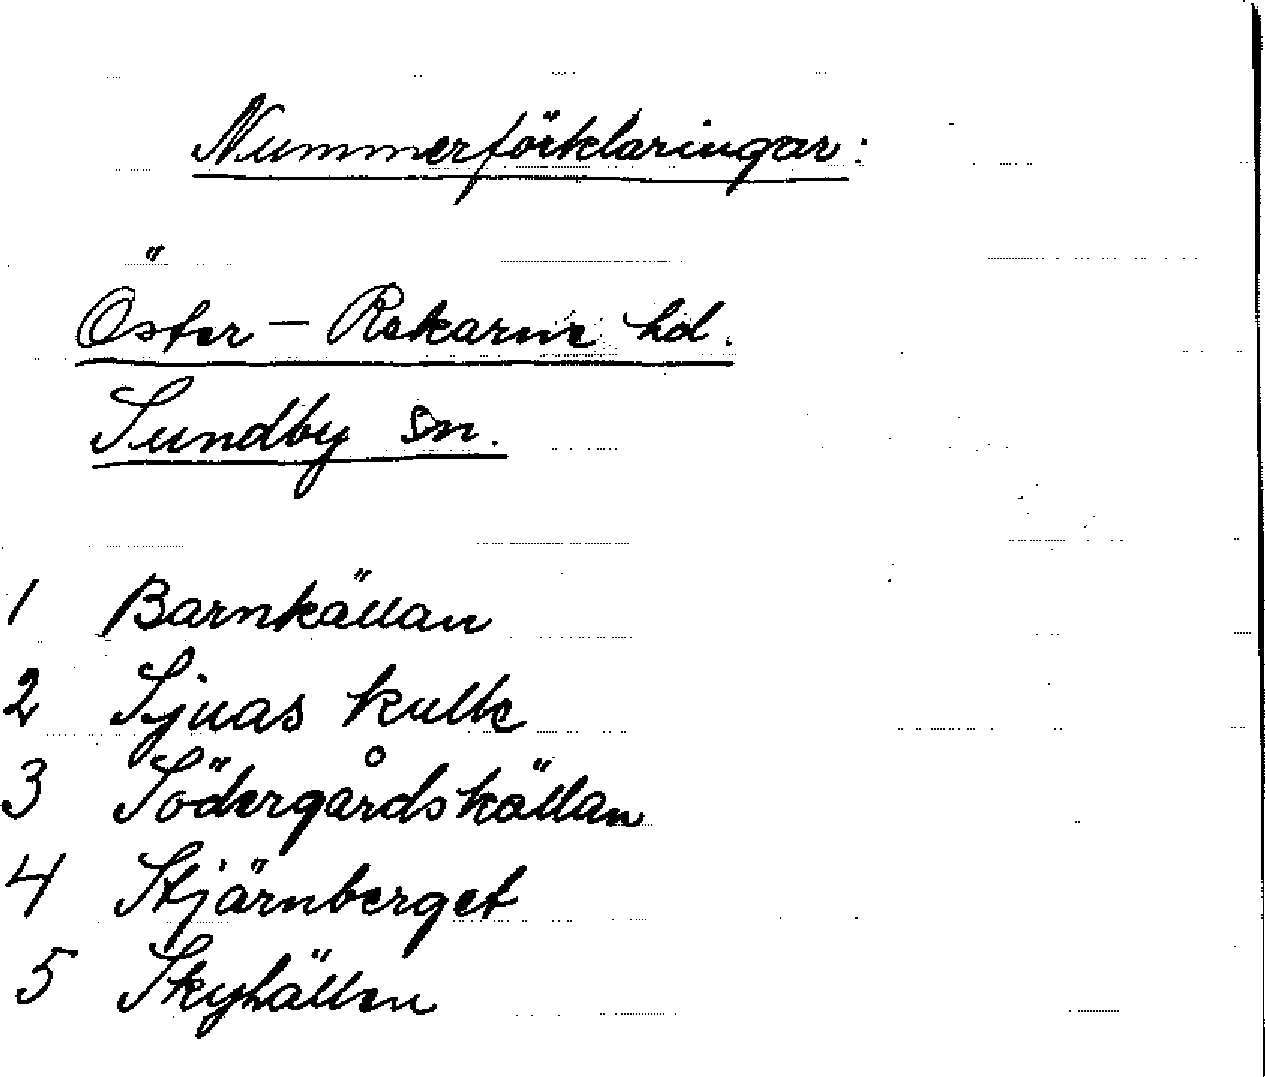 Nummerförklaringar:
Öster - Rekarne hd.
Sundby sn.
1 Barnkällan
2 Sjuas kulle
3 Södergårdskällan
4 Stjärnberget
5 Skyhällen